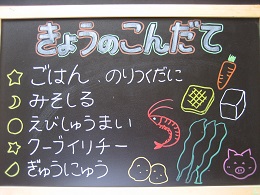 きょうのこんだて
ごはん のりつくだに
みそしる
えびしゅうまい
クーブイリチー
ぎゅうにゅう